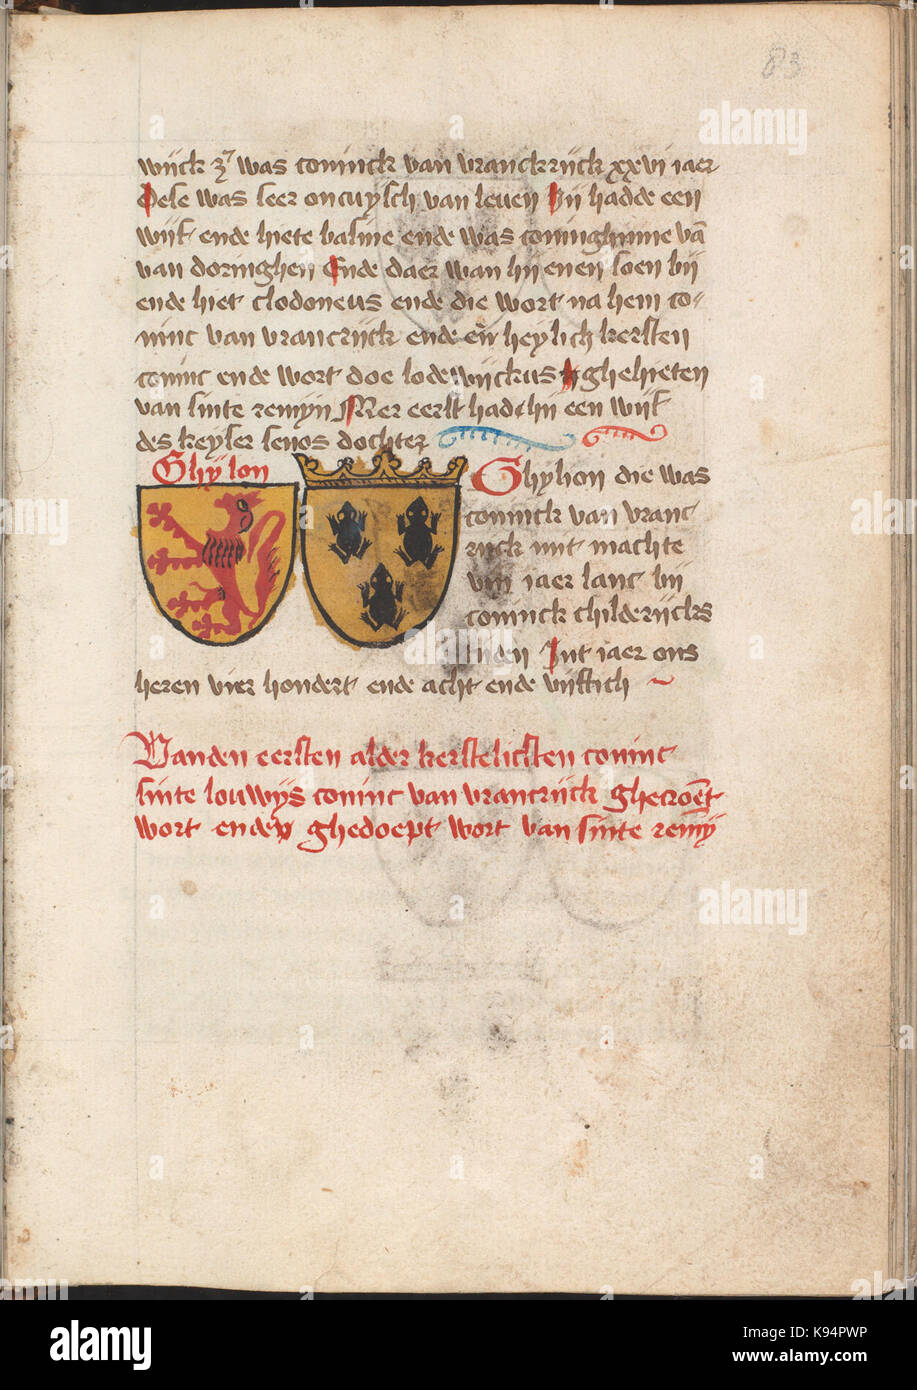 83
wijck z was coninck van vranckrijck xxvi iaer
Dese was seer oncuysch van leuen Hij hadde een
wijf ende hiete basine ende was coninghinne vā
van doringhen Ende daer wan hij enen soen bij
ende hiet clodoneus ende die wort na hem co-
ninc van vrancrijck ende een heylich kersten
coninc ende wort doe lodewijckus ghehieten
van sinte remijn Mer eerst had hij een wijf
des keyser lenos dochter
Ghijlon
Ghylion die was
coninck van vranc
rijck mit machte
viij iaer lanc bij
coninck childerijcks
tiiden Int iaer ons
heren vier hondert ende acht ende vijftich
Vanden eersten alder kerstelicsten coninc
sinte louwijs coninc van vrancrijck ghecroēt
wort ende ghedoept wort van sinte remij
a alamy stock photo
alamy
www.alamy.com
Image ID: K94PWP